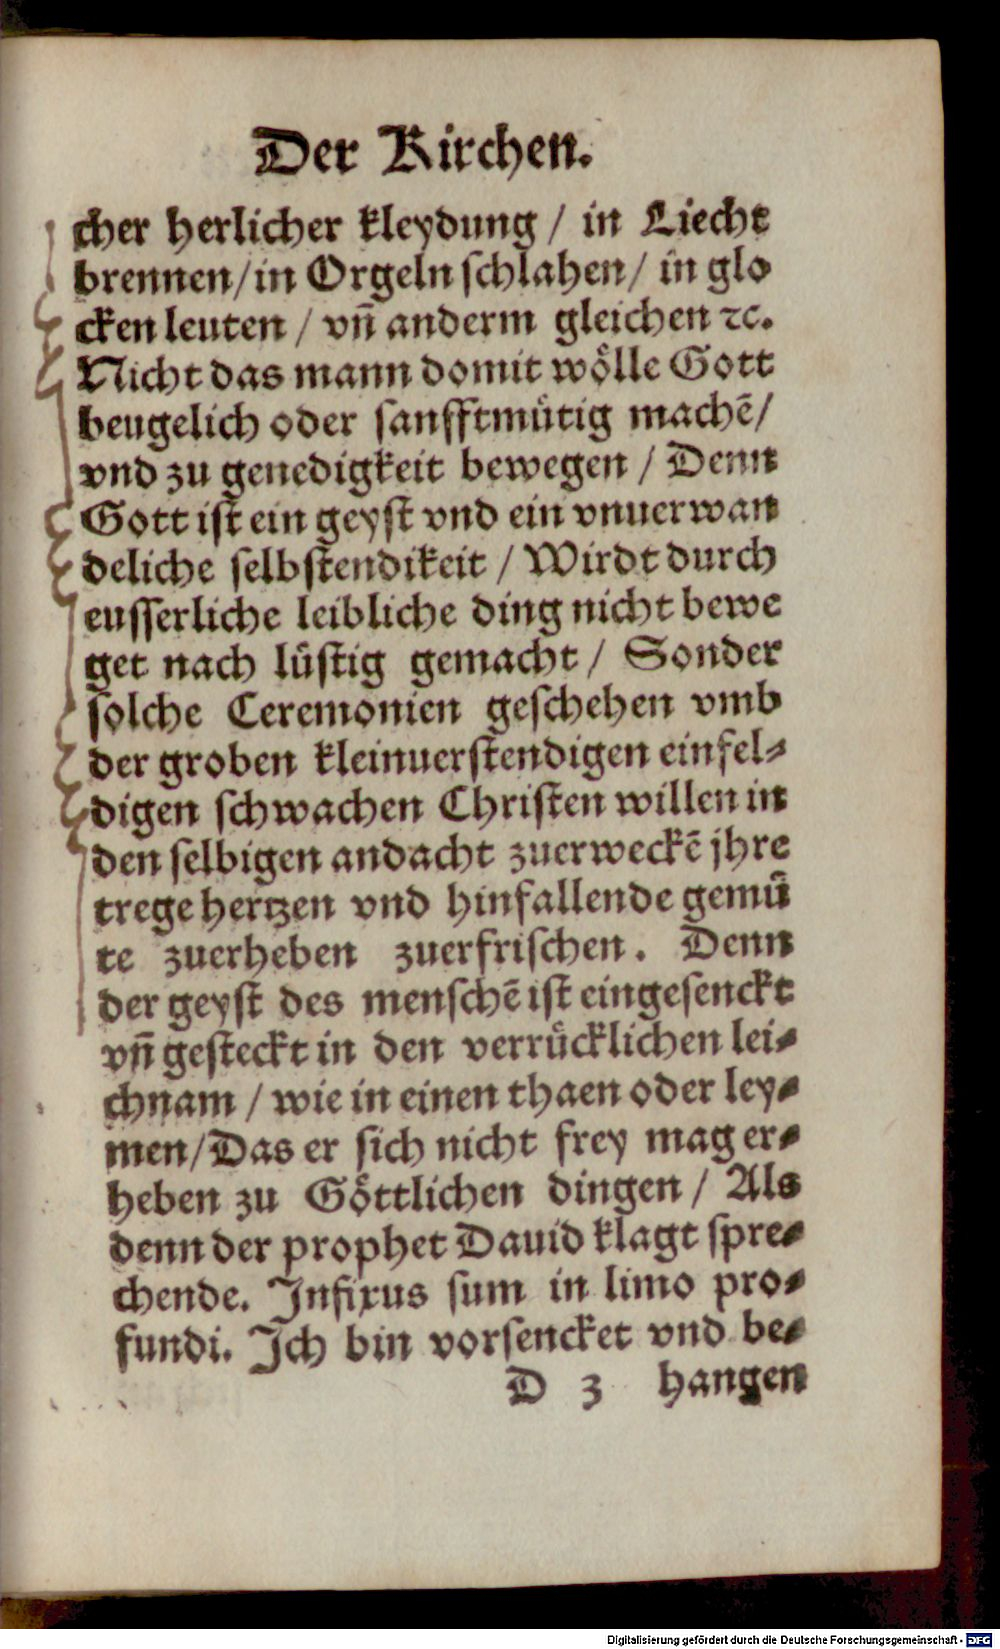 Der Kirchen.
cher herlicher kleydung / in Liecht
brennen/in Orgeln schlahen/ in glo
cken leuten / vñ anderm gleichen ꝛc.
Nicht das mann domit wölle Gott
beugelich oder sanfftmütig machē/
vnd zu genedigkeit bewegen / Denn
Gott ist ein geyst vnd ein vnuerwan
deliche selbstendikeit / Wirdt durch
eusserliche leibliche ding nicht bewe
get nach lüstig gemacht / Sonder
solche Ceremonien geschehen vmb
der groben kleinuerstendigen einfel⸗
digen schwachen Christen willen in
den selbigen andacht zuerweckē jhre
trege hertzen vnd hinfallende gemü
te zuerheben zuerfrischen. Denn
der geyst des menschē ist eingesenckt
vñ gesteckt in den verrücklichen lei⸗
chnam / wie in einen thaen oder ley⸗
men/Das er sich nicht frey mag er⸗
heben zu Göttlichen dingen / Als
denn der prophet Dauid klagt spre⸗
chende. Infixus sum in limo pro⸗
fundi. Ich bin vorsencket vnd be⸗
D 3 hangen
Digitalisierung gefördert durch die Deutsche Forschungsgemeinschaft - DFG